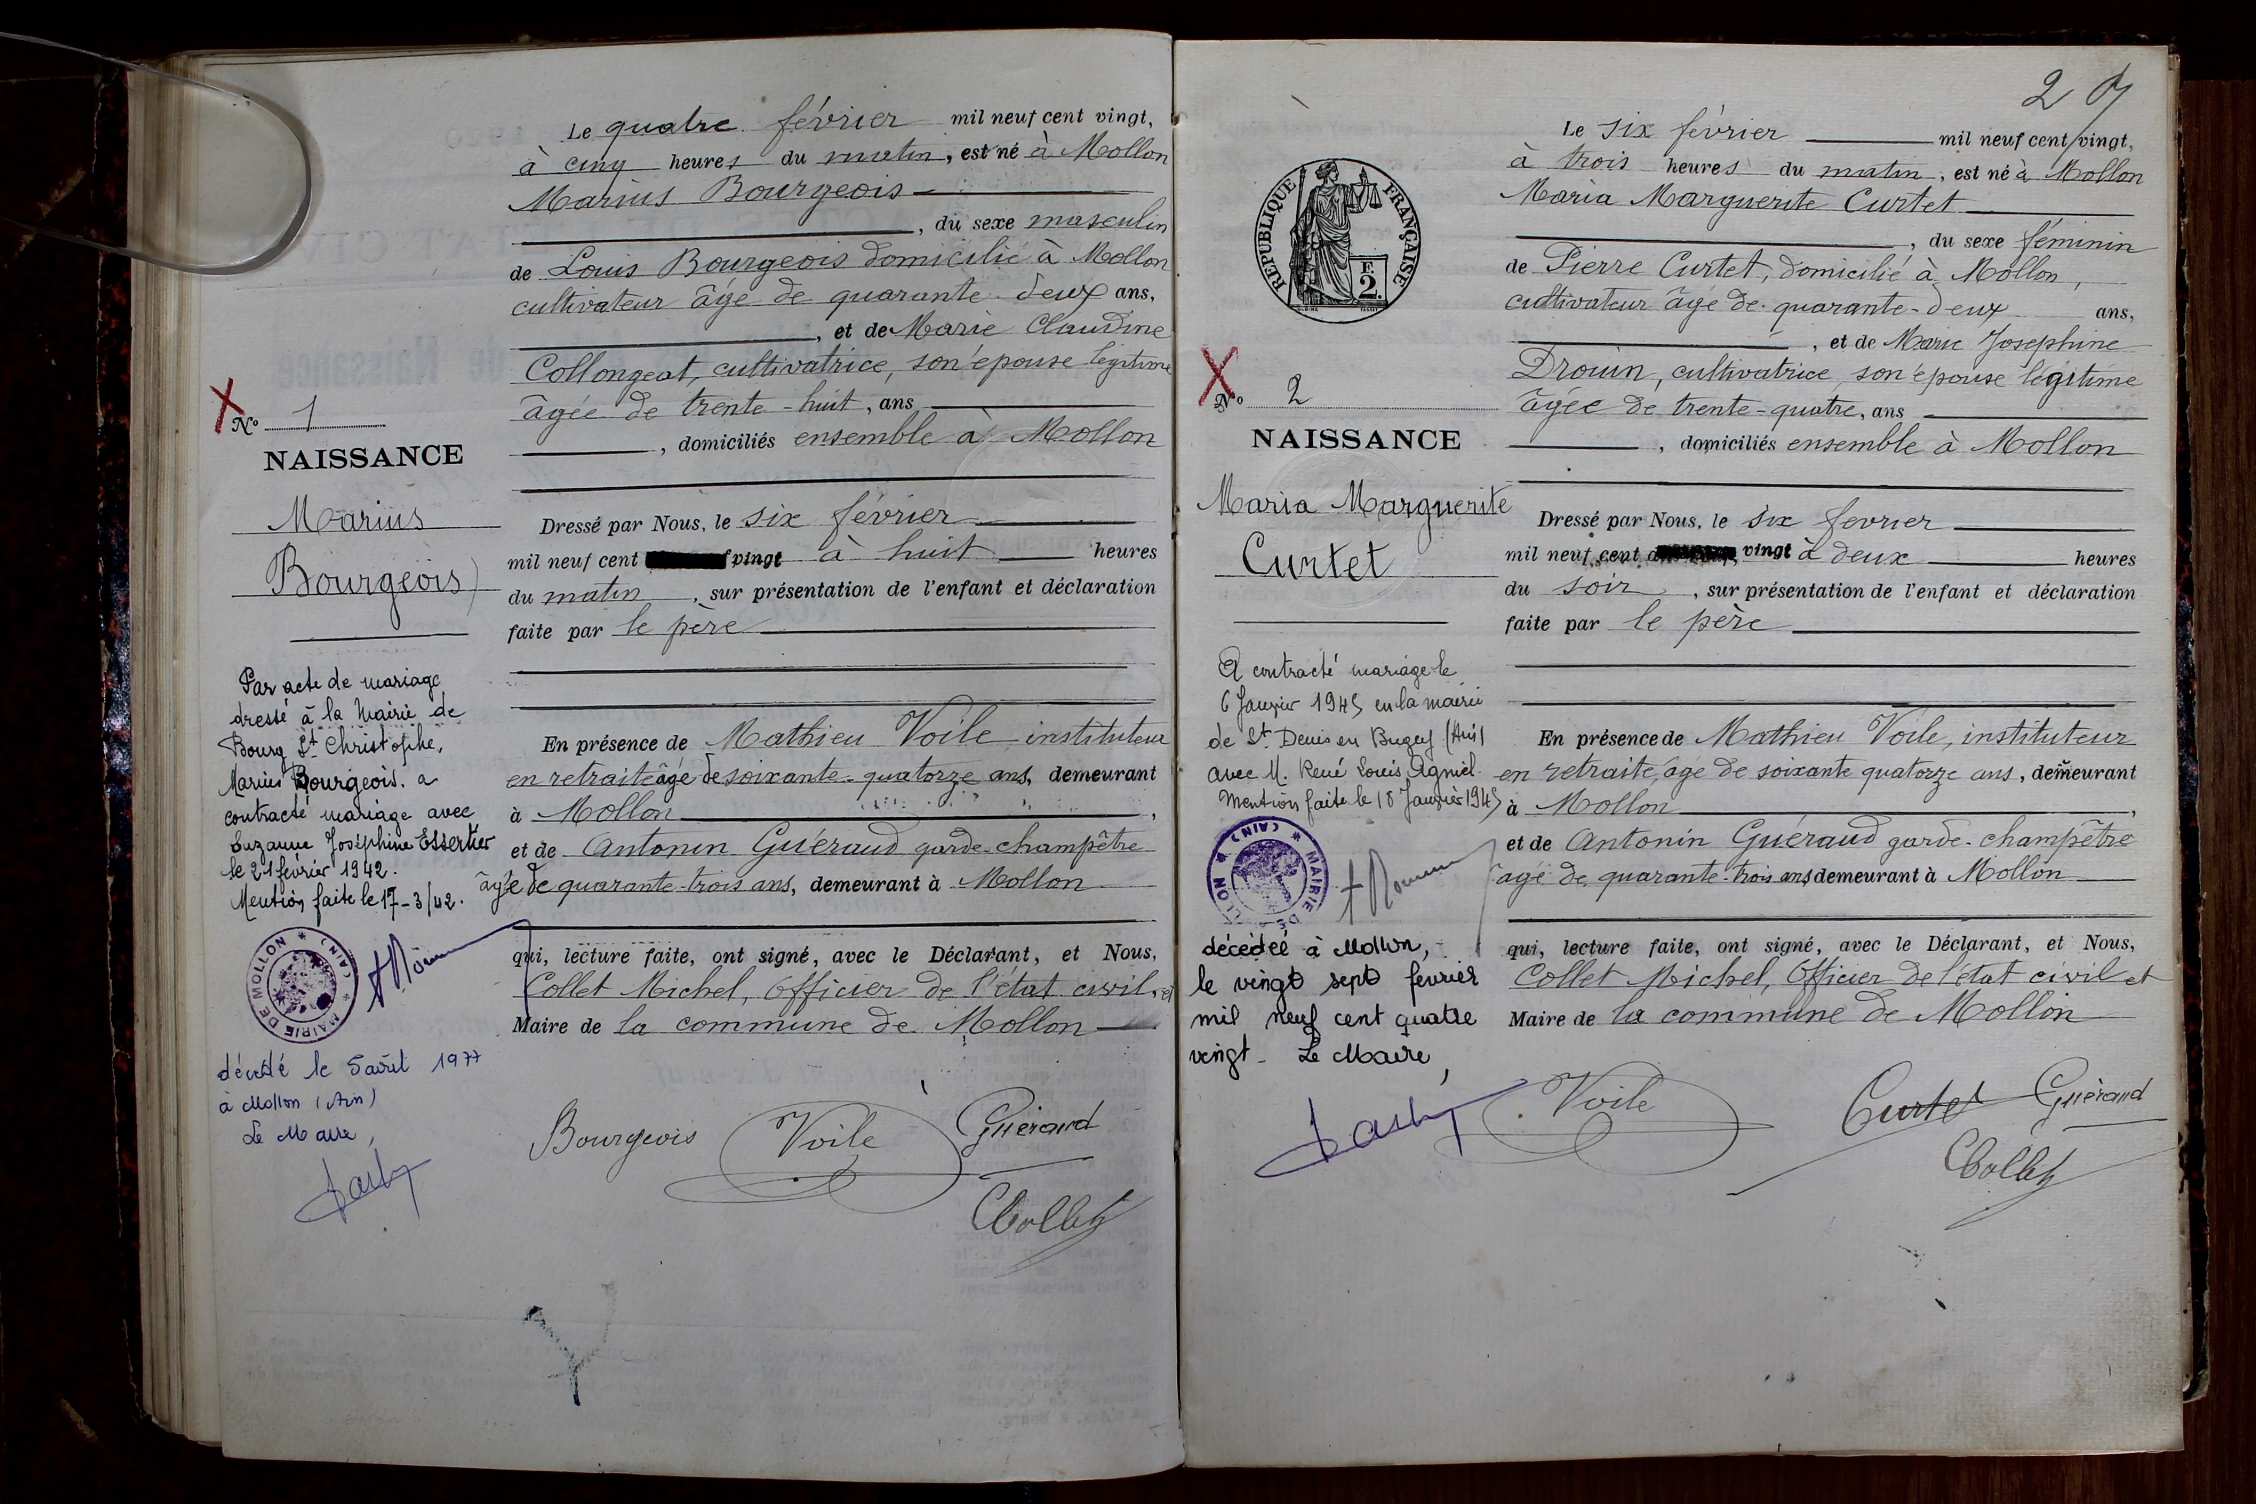 Le quatre février mil neuf cent vingt,
à cinq heures du matin, est né à Mollon
Marius Bourgeois
, du sexe masculin
de Louis Bourgeois domicilié à Mollon
cultivateur âgé de quarante-deux ans,
, et de Marie Claudine
Collongeat, cultivatrice, son épouse légitime
âgée de trente-huit, ans
, domiciliés ensemble à Mollon
No 1
NAISSANCE
Marius
Bourgeois
Dressé par Nous, le six février
mil neuf cent vingt à huit heures
du matin, sur présentation de l'enfant et déclaration
faite par le père
Par acte de mariage
dressé à la Mairie de
Bourg St Christophe,
Marius Bourgeois. a
contracté mariage avec
Suzanne Joséphine Essertier
le 21 février 1942.
Mention faite le 17-3/42.
MAIRIE DE MOLLON * (AIN) *
décédé le 5 avril 1977
à Mollon (Ain)
Le Maire,
En présence de Mathieu Voile instituteur
en retraite âgé de soixante-quatorze ans, demeurant
à Mollon,
et de Antonin Guéraud garde-champêtre
âgé de quarante-trois ans, demeurant à Mollon
qui, lecture faite, ont signé, avec le Déclarant, et Nous,
Collet Michel, Officier de l'état civil, et
Maire de la commune de Mollon
Bourgeois Voile Guéraud
Collet
2
Le six février mil neuf cent vingt,
à trois heures du matin, est né à Mollon
Maria Marguerite Curtet
, du sexe féminin
de Pierre Curtet, domicilié à Mollon,
cultivateur âgé de quarante-deux ans,
, et de Marie Josephine
Drouin, cultivatrice, son épouse légitime
âgée de trente-quatre, ans
, domiciliés ensemble à Mollon
REPUBLIQUE FRANÇAISE
F.
2.
No 2
NAISSANCE
Maria Marguerite
Curtet
Dressé par Nous, le six fevrier
mil neuf cent vingt à deux heures
du soir, sur présentation de l'enfant et déclaration
faite par le père
A contracté mariage le
6 Janvier 1945 en la mairie
de St Denis en Bugey (Ain)
avec M. René Louis Agniel.
Mention faite le 18 Janvier 1945
MAIRIE DE MOLLON * (AIN) *
décédée à Mollon,
le vingt sept fevrier
mil neuf cent quatre
vingt - Le Maire,
En présence de Mathieu Voile, instituteur
en retraite, âgé de soixante quatorze ans, demeurant
à Mollon,
et de Antonin Guéraud garde-champêtre
âgé de quarante-trois ans, demeurant à Mollon
qui, lecture faite, ont signé, avec le Déclarant, et Nous,
Collet Michel, Officier de l'état civil et
Maire de la commune de Mollon
Voile Curtet Guéraud
Collet